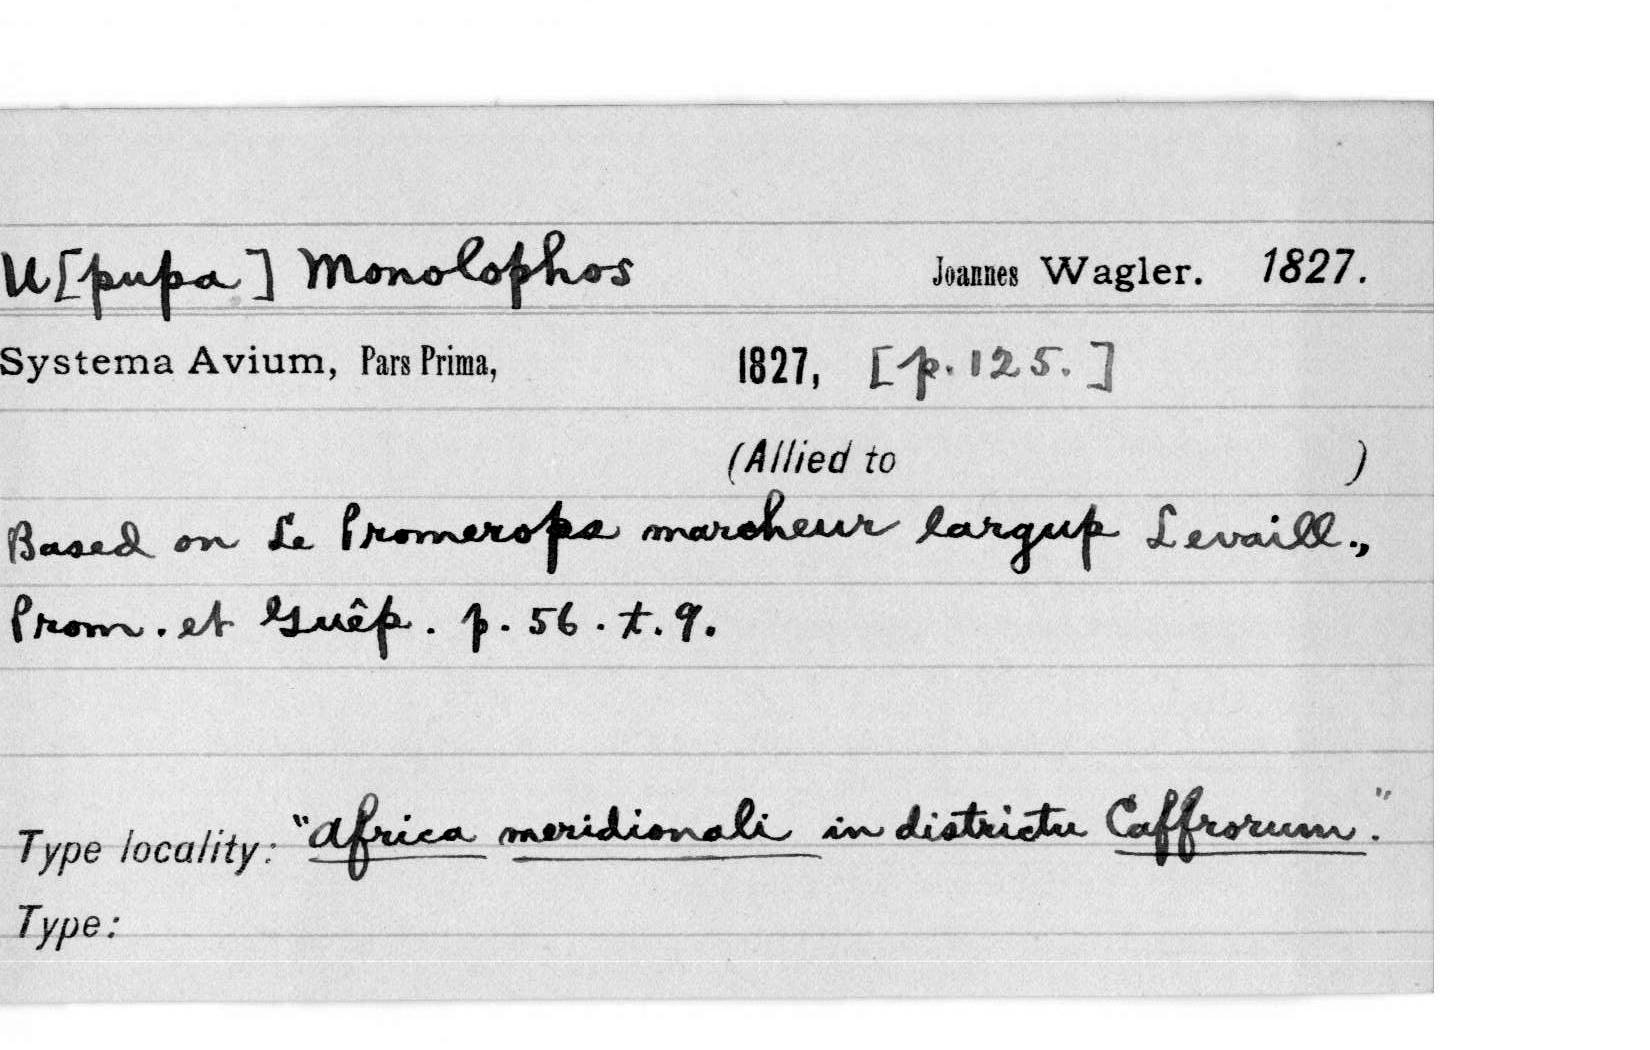 U[pupa] Monolophos Joannes Wagler. 1827.
Systema Avium, Pars Prima, 1827, [p. 125.]
(Allied to )
Based on Le Promerops marcheur largup Levaill.,
Prom. et Guêp. p. 56. t. 9.
Type locality: "Africa meridionali in districtu Caffrorum."
Type: